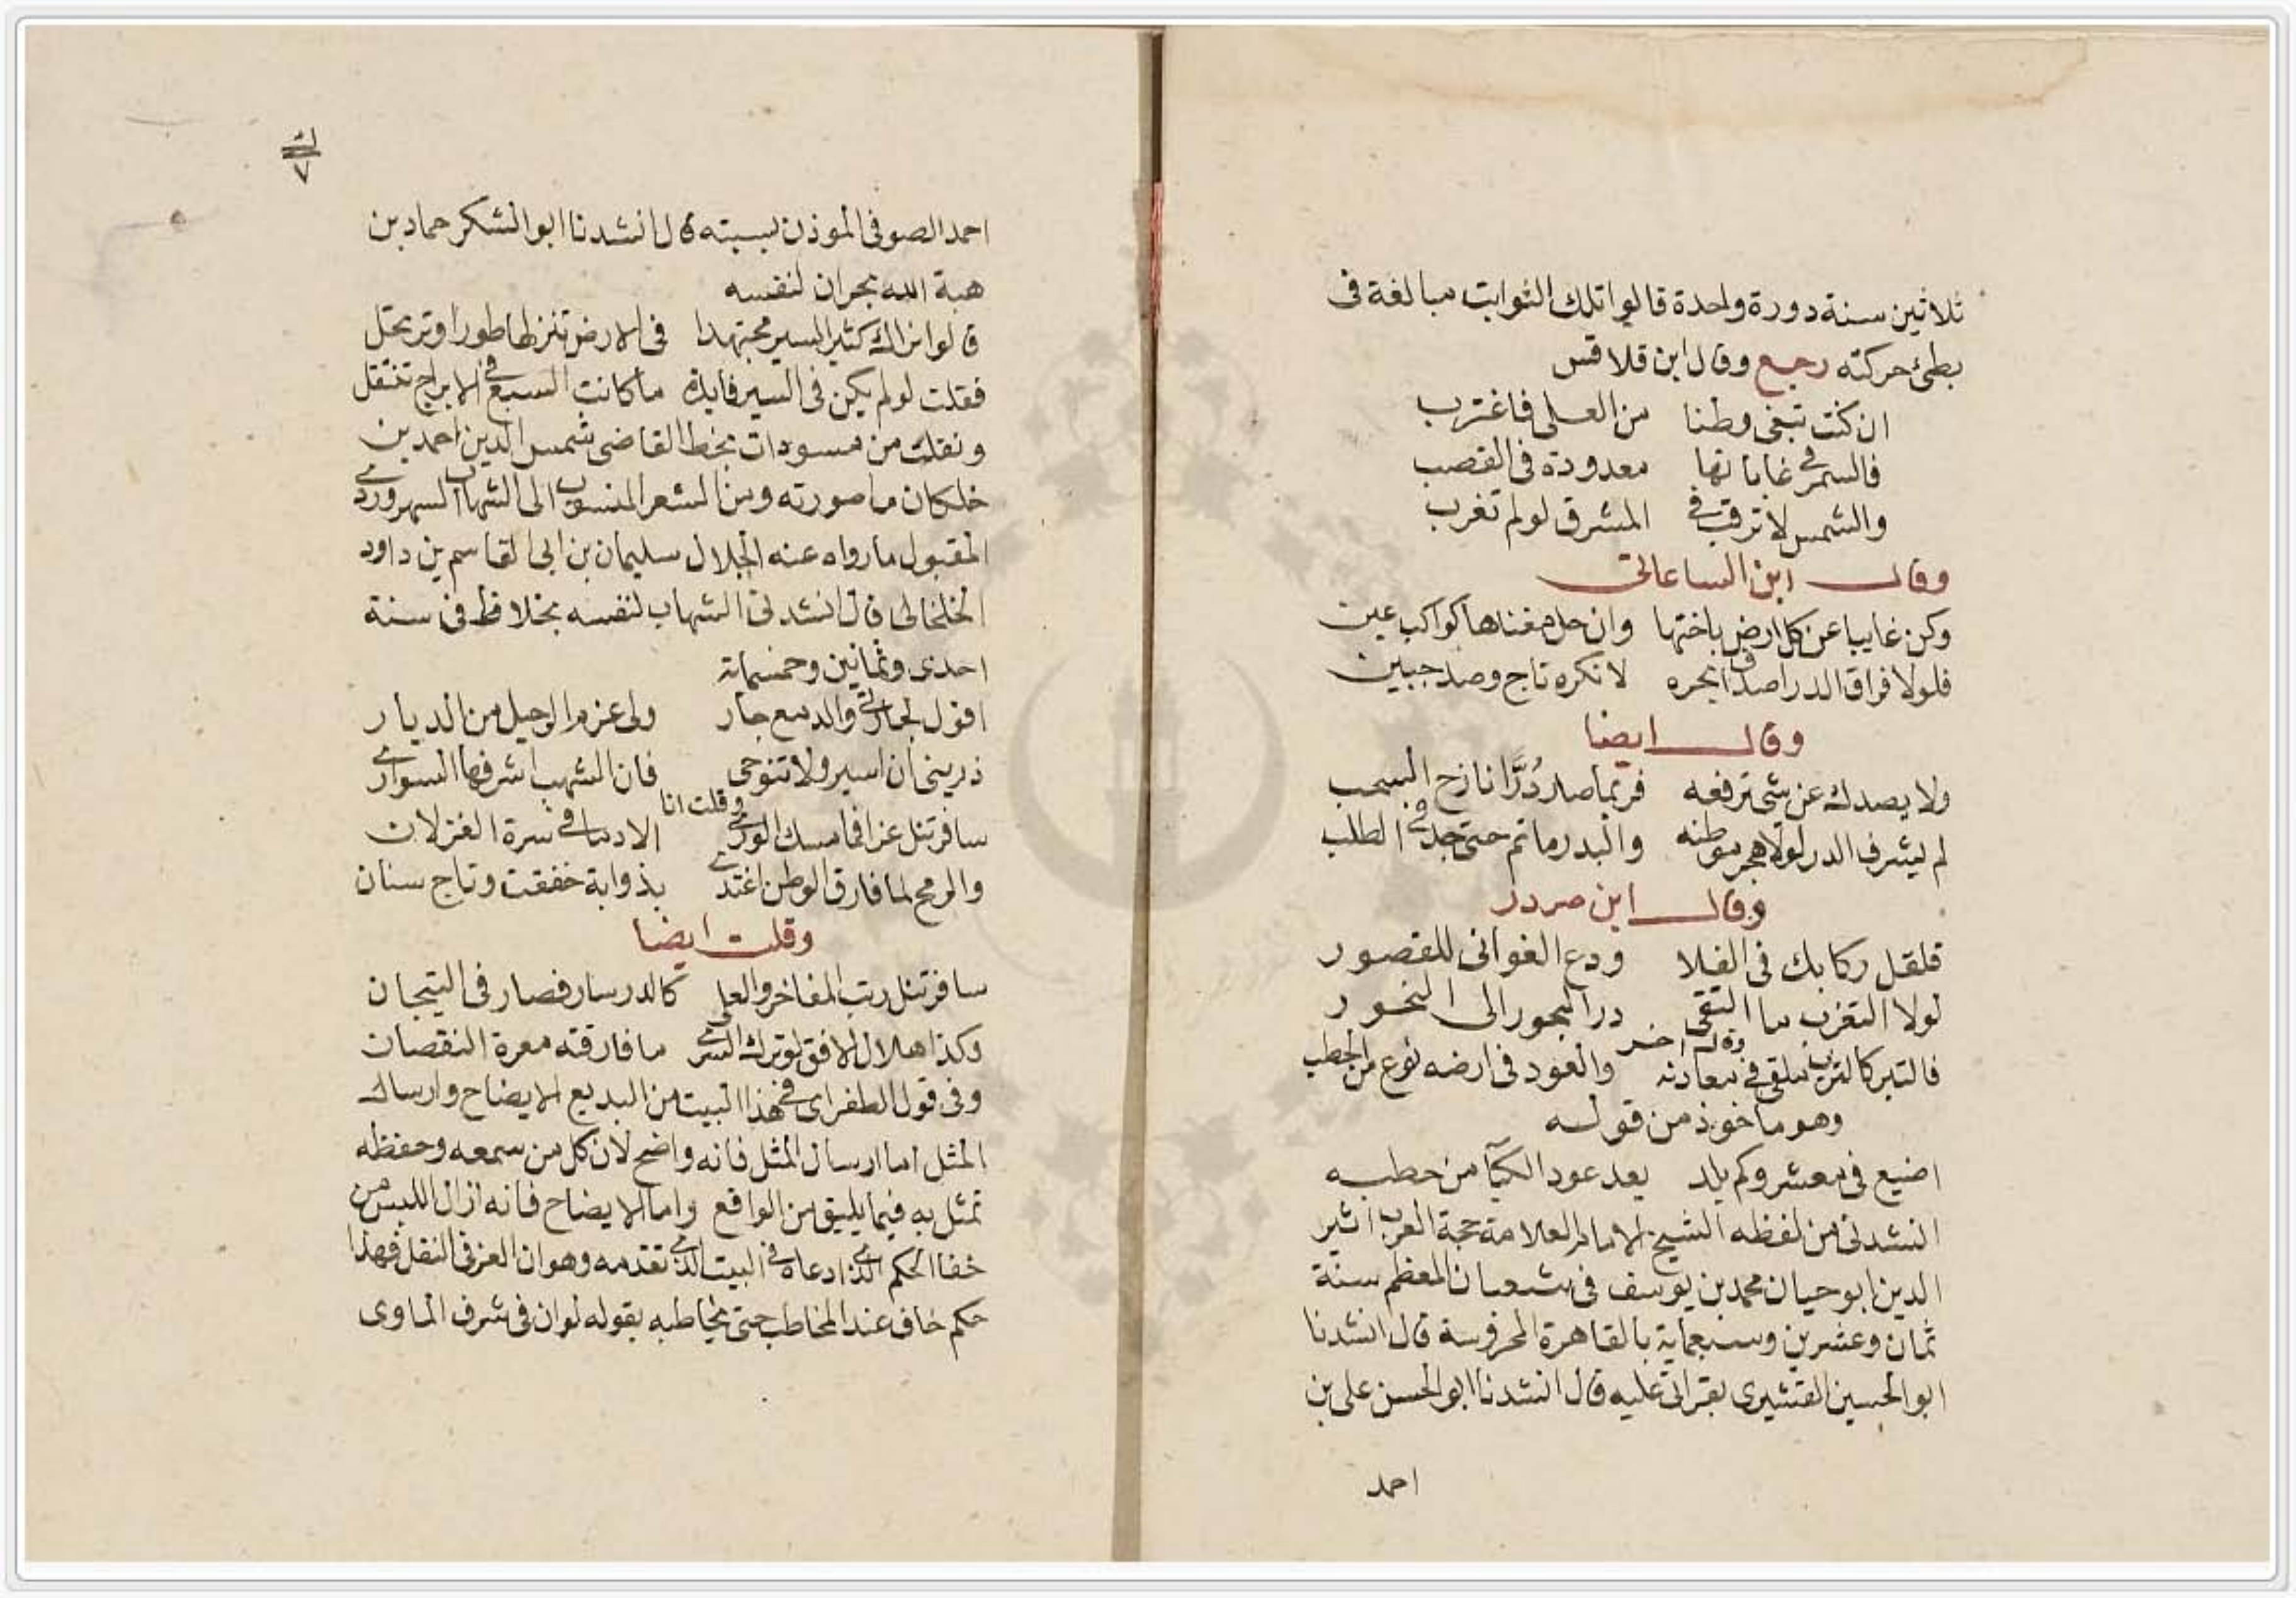 ثلاثين سنة دورة واحدة قالوا تلك الثوابت مبالغة فى
بطئ حركته رجع وقال ابن قلاقس
ان كنت تبغى وطنا من العلى فاغترب
فالسمر فى غاباتها معدودة فى القصب
والشمس لا ترقب فى المشرق لو لم تغرب
وقال ابن الساعاتى
وكن غايبا عن كل ارض باختها وان حل مغناها كواكب عين
فلولا فراق الدر اصداف بحره لانكره تاج وصد جبين
وقال ايضا
ولا يصدك عن شى ترفعه فربما صار دُرَّا نازح السحب
لم يشرف الدر لولا هجر موطنه والبدر ما تم حتى جد فى الطلب
وقال ابن صردر
قلقل ركابك فى الفلا ودع الغوانى للقصور
لولا التغرب ما التقى در البحور الى النحور
وقال اخر
فالتبر كالترب ملقى فى معادنه والعود فى ارضه نوع من الحطب
وهو ماخوذ من قوله
اضيع فى معشر وكم بلد يعد عود الكبآ من حطبه
انشدنى من لفظه الشيخ الامام العلامة حجة العرب اثير
الدين ابو حيان محمد بن يوسف فى شعبان المعظم سنة
ثمان وعشرين وسبعماية بالقاهرة المحروسة قال انشدنا
ابو الحسين القشيرى بقراتى عليه قال انشدنا ابو الحسن على بن
احمد
ك
٧
احمد الصوفى الموذن بسبته قال انشدنا ابو الشكر حماد بن
هبة الله بحران لنفسه
قالوا نراك كثير السير مجتهدا فى الارض تنزلها طورا وترتحل
فقلت لو لم يكن فى السير فايدة ما كانت السبع فى الابراج تنتقل
ونقلت من مسودات بخط القاضى شمس الدين احمد بن
خلكان ما صورته ومن الشعر المنسوب الى الشهاب السهروردى
المقبول ما رواه عنه الجلال سليمان بن ابى القاسم بن داود
الخلخالى قال انشدنى الشهاب لنفسه بخلاط فى سنة
احدى وثمانين وخمسماية
اقول لجارتى والدمع جار ولى عزم الرحيل من الديار
ذرينى ان اسير ولا تنوحى فان الشهب اشرفها السوارى
وقلت انا
سافر تنل عزا فما مسك الورى الا دما فى سرة الغزلان
والرمح لما فارق الوطن اغتدى بذوابة خفقت وتاج سنان
وقلت ايضا
سافر تنل رتب المفاخر والعلى كالدر سار فصار فى التيجان
وكذا هلال الافق لو ترك السرى ما فارقته معرة النقصان
وفى قول الطغراى فى هذا البيت من البديع الايضاح وارسال
المثل اما ارسال المثل فانه واضح لان كل من سمعه وحفظه
تمثل به فيما يليق من الواقع واما الايضاح فانه ازال اللبس من
خفا الحكم الذى ادعاه فى البيت الذى تقدمه وهو ان العز فى النقل فهذا
حكم خاف عند المخاطب حتى يخاطبه بقوله لو ان فى شرف الماوى